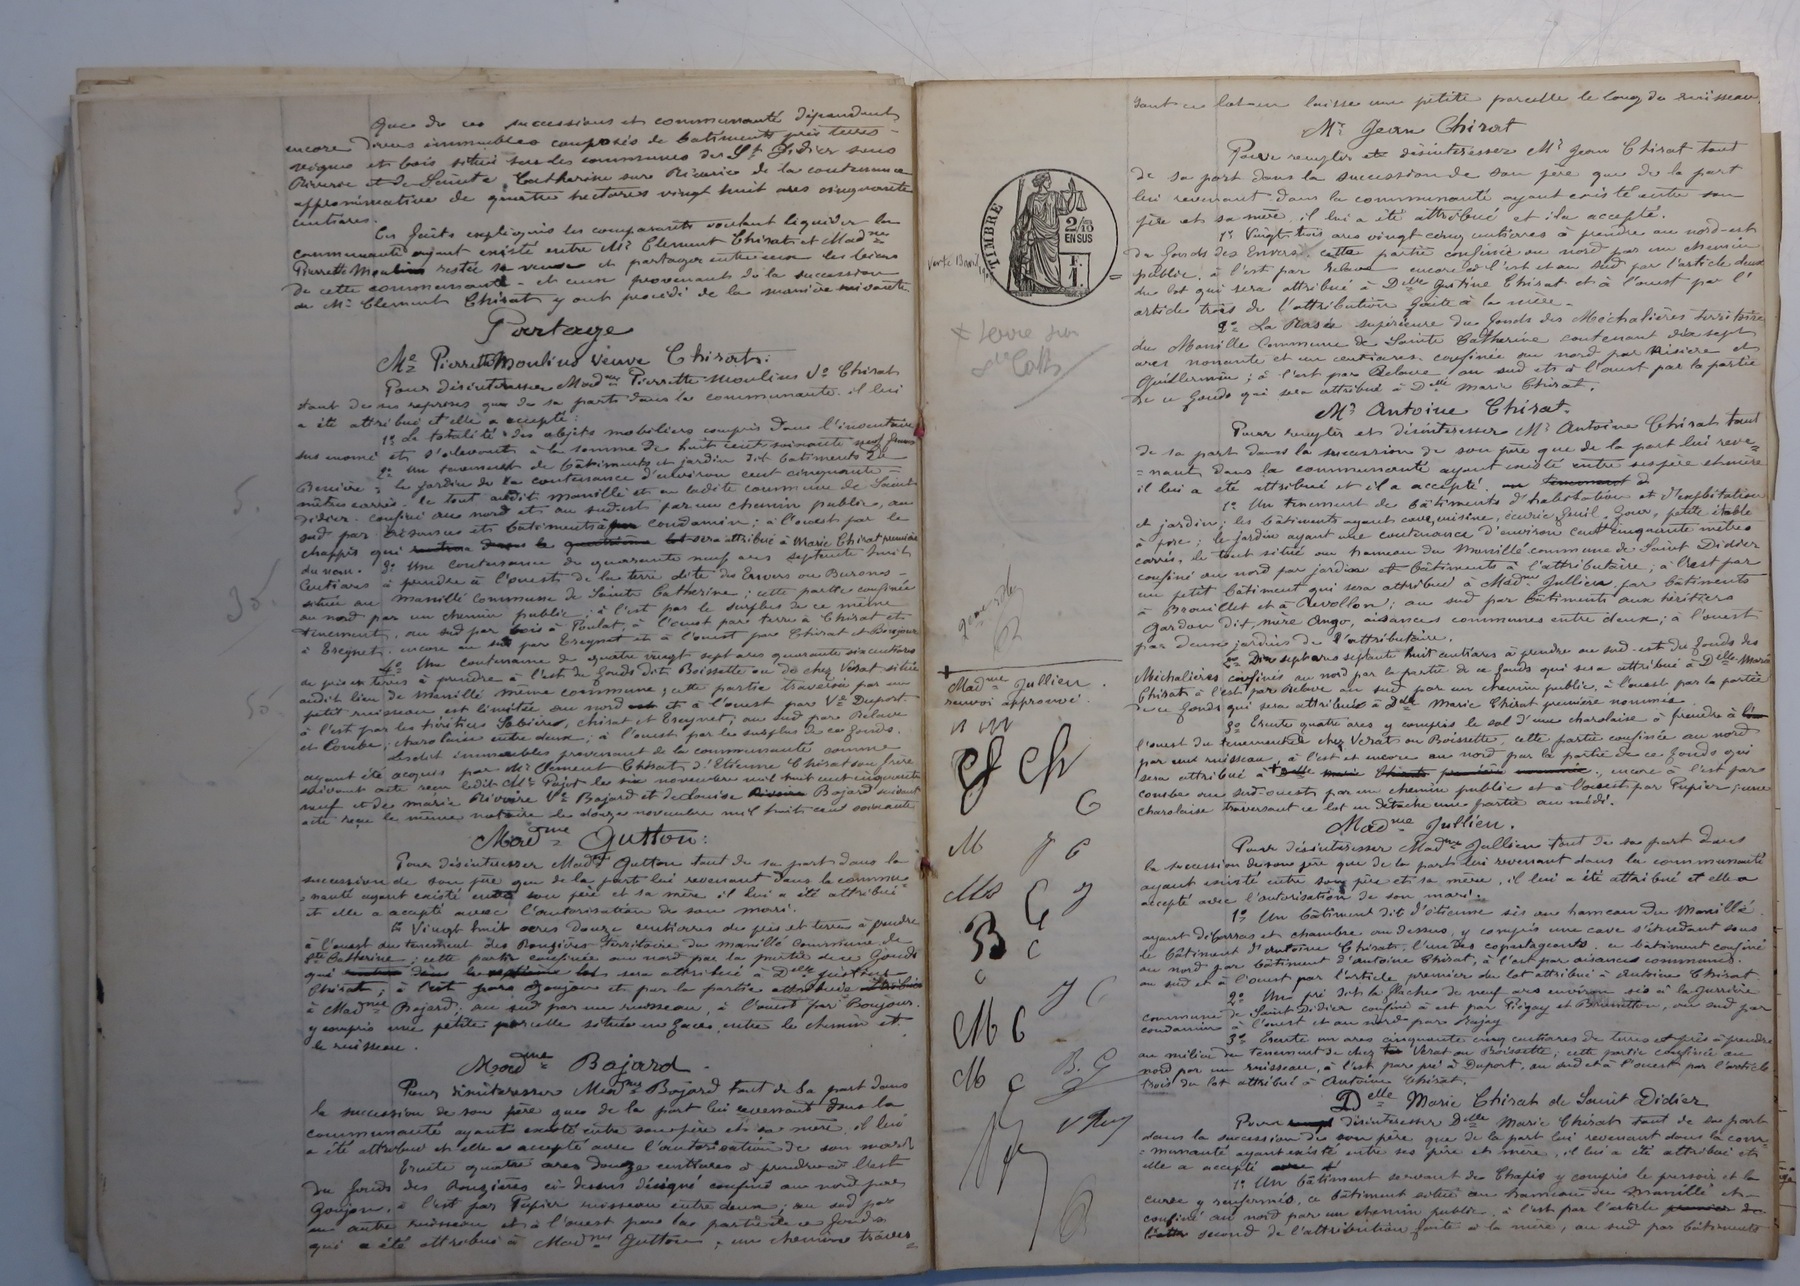 Que de ces successions et communauté dépendent
encore divers immeubles composés de bâtiments prés terres
vignes et bois situés sur les communes de St Didier sous
Riverie et de Sainte Catherine sur Riverie de la contenance
approximative de quatre hectares vingt huit ares cinquante
centiares.
Ces faits expliqués les comparants voulant liquider la
communauté ayant existé entre Mr Clement Chirat et Madme
Pierrette Moulins restée sa veuve et partager entre eux les biens
de cette communauté et ceux provenants de la succession
de Mr Clement Chirat y ont procédé de la manière suivante
Partage
Me Pierrette Moulins veuve Chirat:
Pour désintéresser Madme Pierrette Moulins Ve Chirat
tant de ses reprises que de sa part dans la communauté il lui
a été attribué et elle a accepté:
1° La totalité des objets mobiliers compris dans l'inventaire
sus énoncé et s'élevant à la somme de huit cent soixante neuf francs
2° Un tenement de bâtiments et jardin dit bâtiments de
; le jardin de la contenance d'environ cent cinquante
mètres carrés. le tout audit Manillé et en ladite commune de Saint
Didier. confiné au nord et au sud-est par un chemin public, au
sud par et bâtiments à Condamin; à l'ouest par le
chappis qui sera attribué à Marie Chirat première
du nom. 3° Une contenance de quarante neuf ares septante huit
centiares à prendre à l'ouest de la terre dite des Envers ou Burones
située au Manillé commune de Sainte Catherine; cette partie confinée
au nord par un chemin public; à l'est par le surplus de ce même
tenement, au sud par bois à Poulat, à l'ouest par terre à Chirat et
à Escynet; encore au sud par Escynet et à l'ouest par Chirat et Bonjour
4° Une contenance de quatre vingt sept ares quarante six centiares
de prés et terres à prendre à l'est du fonds dit Boissette ou de chez Verat située
audit lieu de Manillé même commune; cette partie traversée par un
petit ruisseau est limitée au nord et à l'ouest par Ve Duport
à l'est par les héritiers , Chirat et Escynet; au sud par Relave
et Combe; charolaise entre deux; à l'ouest par le surplus de ce fonds.
Lesdits immeubles provenant de la communauté comme
ayant été acquis par Mr Clement Chirat d'Etienne Chirat son frère
suivant acte reçu ledit Me Pajot le six novembre mil huit cent cinquante
neuf et de Marie Rivoire Ve Bajard et de Louise Bajard suivant
acte reçu le même notaire le douze novembre mil huit cent soixante
Madme Gutton:
Pour désintéresser Madme Gutton tant de sa part dans la
succession de son père que de la part lui revenant dans la commu-
=nauté ayant existé entre son père et sa mère il lui a été attribué
et elle a accepté avec l'autorisation de son mari.
1° Vingt huit ares douze centiares de prés et terres à prendre
à l'ouest du tenement des Rouzières territoire du Manillé commune de
Ste Catherine; cette partie confinée au nord par la partie de ce fonds
qui sera attribué à Delle Justine
Chirat; à l'est par Goujon et par la partie attribuée
à Madme Bajard; au sud par un ruisseau, à l'ouest par Bonjour.
y compris une petite parcelle située en face, entre le chemin et
le ruisseau.
Madme Bajard
Pour désintéresser Madme Bajard tant de sa part dans
la succession de son père que de la part lui revenant dans la
communauté ayant existé entre son père et sa mère, il lui
a été attribué et elle a accepté avec l'autorisation de son mari
Trente quatre ares douze centiares à prendre à l'est
du fonds des Rouzières ci-dessus désigné confiné au nord par
Goujon, à l'est par Papier ruisseau entre deux; au sud par
un autre ruisseau et à l'ouest par la partie de ce fonds
qui a été attribué à Madme Gutton; un chemin traver=
5.
30.
50
TIMBRE
2/10
EN SUS
F.
1.
+ terre sur
+
Madme Jullien.
renvoi approuvé.
M
J C
C
M C
M
B.G
sant ce lot en laisse une petite parcelle le long du ruisseau
Mr Jean Chirat
Pour remplir et désintéresser Mr Jean Chirat tant
de sa part dans la succession de son père que de la part
lui revenant dans la communauté ayant existé entre son
père et sa mère, il lui a été attribué et il a accepté.
1° Vingt-trois ares vingt cinq centiares à prendre au nord-est
du fonds des Envers cette partie confinée au nord par un chemin
public, à l'est par Relave encore à l'est et au sud par l'article deux
du lot qui sera attribué à Delle Justine Chirat et à l'ouest par l'
article trois de l'attribution faite à la mère.
2° La Rasée supérieure du fonds des Méchalières territoire
du Manillé commune de Sainte Catherine contenant dix sept
ares nonante et un centiares confinée au nord par et
Guillermin; à l'est par Relave au sud et à l'ouest par la partie
de ce fonds qui sera attribué à Delle Marie Chirat.
Mr Antoine Chirat.
Pour remplir et désintéresser Mr Antoine Chirat tant
de sa part dans la succession de son père que de la part lui reve=
=nant dans la communauté ayant existé entre ses père et mère
il lui a été attribué et il a accepté.
1° Un tenement de bâtiments d'habitation et d'exploitation
et jardin; les bâtiments ayant cave, cuisine, écurie, fenil, four, petite étable
à porc; le jardin ayant une contenance d'environ cent cinquante mètres
carrés, le tout situé au hameau du Manillé commune de Saint Didier
confiné au nord par jardin et bâtiments à l'attributaire; à l'est par
un petit bâtiment qui sera attribué à Madme Jullien, par bâtiments
à Brouillet et à Revollon; au sud par bâtiments aux héritiers
Jardon dit père Ango, aisances communes entre deux; à l'ouest
par deux jardins de l'attributaire.
2° Dix sept ares septante huit centiares à prendre au sud-est du fonds des
Michalières confinés au nord par la partie de ce fonds qui sera attribué à Delle Marie
Chirat à l'est par Relave au sud par un chemin public, à l'ouest par la partie
de ce fonds qui sera attribuée à Delle Marie Chirat première nommée.
3° Trente quatre ares y compris le sol d'une charolaise à prendre à
l'ouest du tenement de chez Verat ou Boissette, cette partie confinée au nord
par un ruisseau, à l'est et encore au nord par la partie de ce fonds qui
sera attribué à + Delle Marie Chirat première nommée., encore à l'est par
Combe au sud-ouest par un chemin public et à l'ouest par Papier; une
charolaise traversant ce lot en détache une partie au midi.
Madme Jullien.
Pour désintéresser Madme Jullien tant de sa part dans
la succession de son père que de la part lui revenant dans la communauté
ayant existé entre son père et sa mère, il lui a été attribué et elle a
accepté avec l'autorisation de son mari.
1° Un bâtiment dit d'étienne sis au hameau du Manillé
ayant débarras et chambre au dessus, y compris une cave s'étendant sous
le bâtiment d'Antoine Chirat, l'un des copartageants. ce bâtiment confiné
au nord par bâtiment d'Antoine Chirat, à l'est par aisances communes.
au sud et à l'ouest par l'article premier du lot attribué à Antoine Chirat.
2° Un pré dit la flache de neuf ares environ sis à la
commune de Saint Didier confiné à est par Pitigay et , au sud par
Condamin à l'ouest et au nord par Bajay
3° Trente un ares cinquante cinq centiares de terres et prés à prendre
au milieu du tenement de chez Verat ou Boissette; cette partie confinée au
nord par un ruisseau, à l'est par pré à Duport, au sud et à l'ouest par l'article
trois du lot attribué à Antoine Chirat.
Delle Marie Chirat de Saint Didier
Pour désintéresser Delle Marie Chirat tant de sa part
dans la succession de son père que de la part lui revenant dans la com=
=munauté ayant existé entre ses père et mère, il lui a été attribué et
elle a accepté
1° Un bâtiment servant de Chapis y compris le pressoir et la
cuve y renfermés, ce bâtiment situé au hameau du Manillé et
confiné au nord par un chemin public, à l'est par l'article
second de l'attribution faite à la mère, au sud par bâtiments